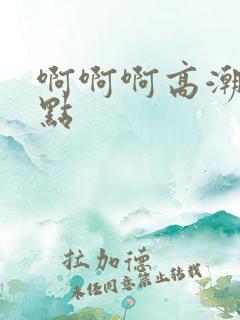 啊啊啊高潮
點
拉加德
未经同意禁止转载